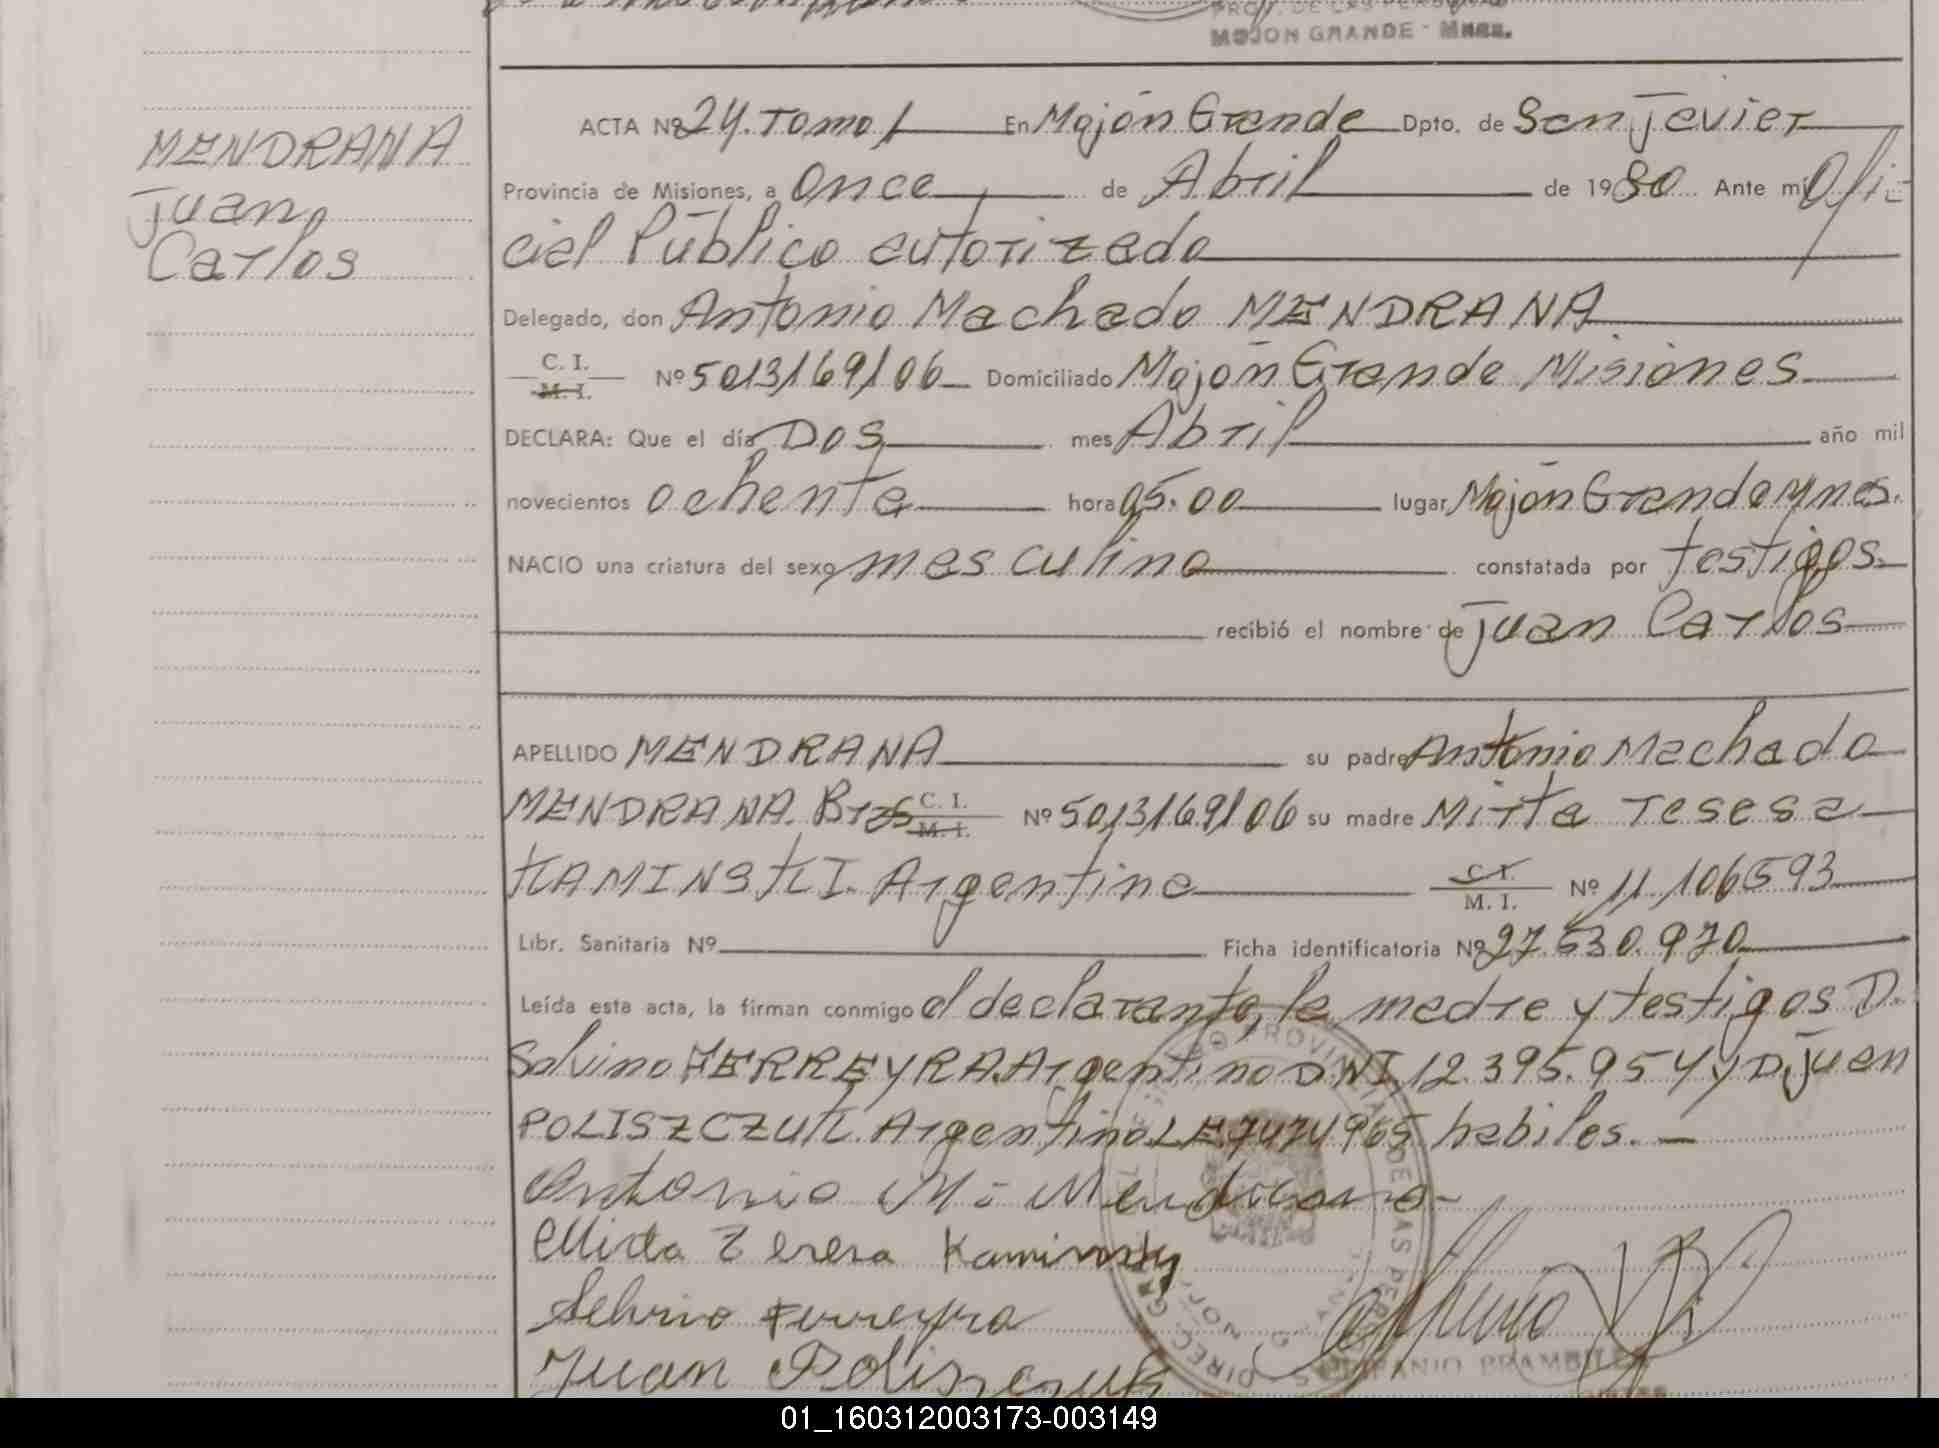 PROV. DE LAS PERSONAS
MOJON GRANDE - Mnes.
MENDRANA
Juan
Carlos
ACTA Nº 24. Tomo 1 En Mojón Grande Dpto. de San Javier
Provincia de Misiones, a Once de Abril de 1980 Ante mi Ofi-
cial Público autorizado
Delegado, don Antonio Machado MENDRANA
C. I.
M. I. Nº 5013169/06 Domiciliado Mojón Grande Misiones
DECLARA: Que el día Dos mes Abril año mil
novecientos ochenta hora 05.00 lugar Mojón Grande Mnes.
NACIO una criatura del sexo masculino constatada por testigos
recibió el nombre de Juan Carlos
APELLIDO MENDRANA su padre Antonio Machado
MENDRANA. Bras C. I. M. I. Nº 5013169/06 su madre Mirta Tesesa
KAMINSKI. Argentina C. I. M. I. Nº 11.106593
Libr. Sanitaria Nº Ficha identificatoria Nº 27.630.970
Leída esta acta, la firman conmigo el declarante, la madre y testigos D.
Solvino FERREYRA. Argentino DNI 12.395.954 y D. Juan
POLISZCZUK. Argentino LE 7474965 habiles. —
Antonio M. Mendrana
Mirta Teresa Kaminsky
Selvino Ferreyra
Juan Poliszczuk
EPIFANIO
01_160312003173-003149